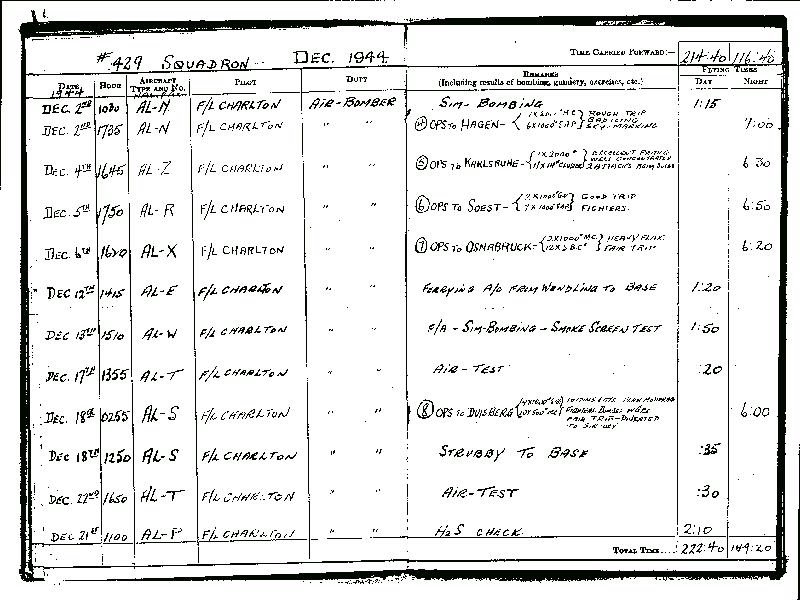 #429 SQUADRON DEC. 1944
TIME CARRIED FORWARD:— 214:40 116:40
DATE 1944 HOUR AIRCRAFT TYPE AND NO. PILOT DUTY REMARKS (Including results of bombing, gunnery, exercises, etc.) FLYING TIMES DAY NIGHT
DEC. 2ND AL-N F/L CHARLTON AIR-BOMBER SIM-BOMBING 1:15
DEC. 2ND 1735 AL-N F/L CHARLTON " " ④ OPS TO HAGEN- ROUGH TRIP 7:00
DEC. 4TH 1645 AL-Z F/L CHARLTON " " ⑤ OPS TO KARLSRUHE- 1X2000# 6 30
DEC. 5TH 1750 AL-R F/L CHARLTON " " ⑥ OPS TO SOEST- GOOD TRIP FIGHTERS. 6:50
DEC. 6TH AL-X F/L CHARLTON " " ⑦ OPS TO OSNABRUCK- HEAVY FLAK FAIR TRIP 6:20
DEC 12TH 1415 AL-E F/L CHARLTON " " FERRYING A/C FROM WENDLING TO BASE 1:20
DEC 13TH 1510 AL-W F/L CHARLTON " " F/A - SIM-BOMBING - SMOKE SCREEN TEST 1:50
DEC. 17TH 1355 AL-T F/L CHARLTON " " AIR-TEST :20
DEC. 18TH 0255 AL-S F/L CHARLTON " " ⑧ OPS TO DUISBERG FAIR TRIP-DIVERTED 6:00
DEC 18TH 1250 AL-S F/L CHARLTON " " STRUBBY TO BASE :35
DEC 22ND 1650 AL-T F/L CHARLTON " " AIR-TEST :30
DEC 21ST 1100 AL-P F/L CHARLTON " " H2S CHECK 2:10
TOTAL TIME.... 222:40 149:20